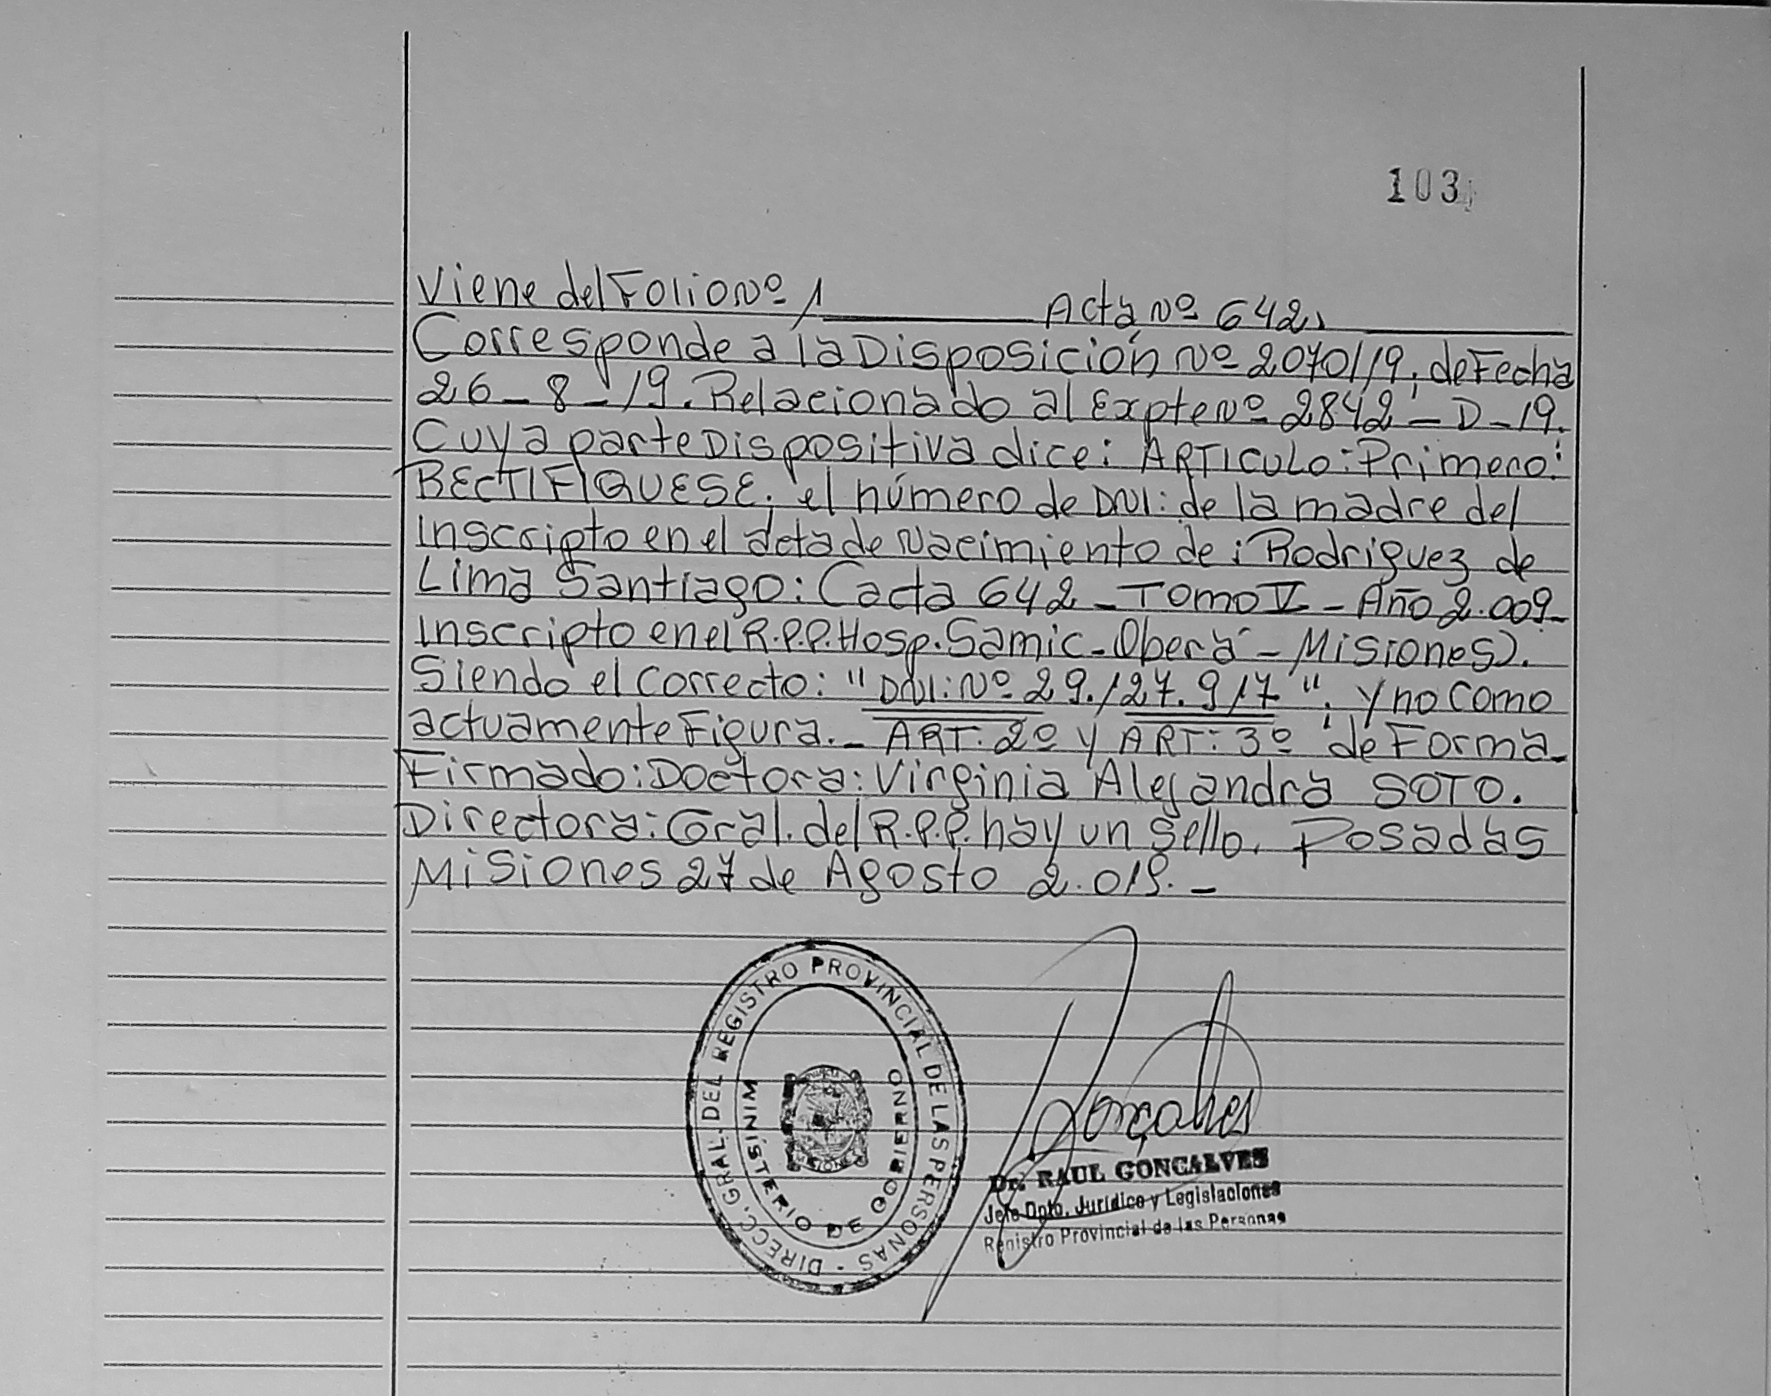 103
Viene del Folio Nº 1 Acta Nº 642,
Corresponde a la Disposición Nº 2070/19, de Fecha
26-8-19. Relacionado al Expte Nº 2842-D-19.
Cuya parte Dispositiva dice: ARTICULO: Primero:
RECTIFIQUESE, el número de DNI: de la madre del
Inscripto en el acta de Nacimiento de: Rodriguez de
Lima Santiago: (acta 642 - Tomo V - Año 2.009-
Inscripto en el R.P.P. Hosp. Samic-Oberá - Misiones).
Siendo el Correcto: "DNI: Nº 29.127.917", y no como
actuamente Figura.- ART: 2º y ART: 3º de Forma-
Firmado: Doctora: Virginia Alejandra SOTO.
Directora: Gral. del R.P.P. hay un Sello. Posadas
Misiones 27 de Agosto 2.019.-
DIRECC. GRAL. DEL REGISTRO PROVINCIAL DE LAS PERSONAS -
MINISTERIO DE GOBIERNO
MISIONES
Goncalves
Dr. RAUL GONCALVES
Jefe Dpto. Jurídico y Legislaciones
Registro Provincial de las Personas